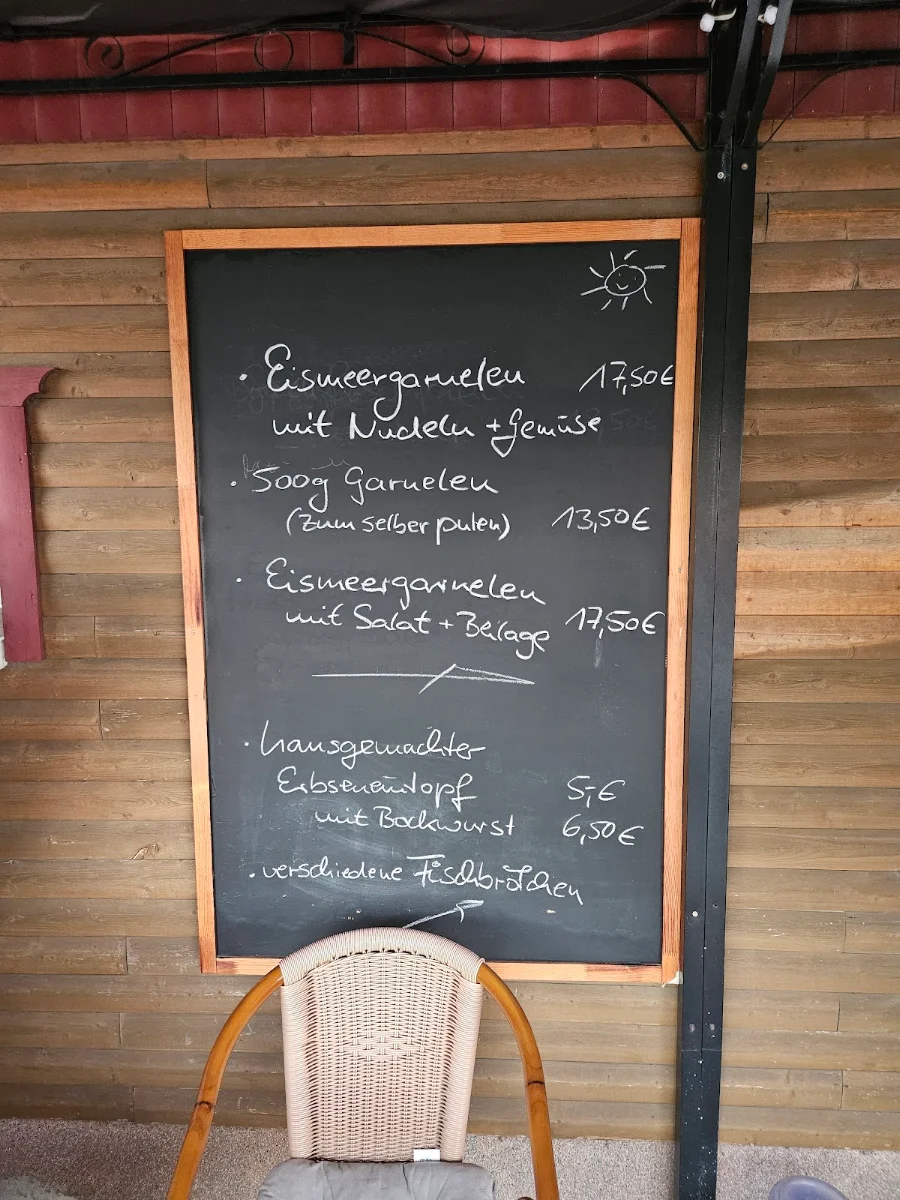 · Eismeergarnelen 17,50€
mit Nudeln + Gemüse
· 500g Garnelen
(zum selber pulen) 13,50€
· Eismeergarnelen
mit Salat + Beilage 17,50€
· hausgemachter
Erbseneintopf 5,-€
mit Bockwurst 6,50€
· verschiedene Fischbrötchen